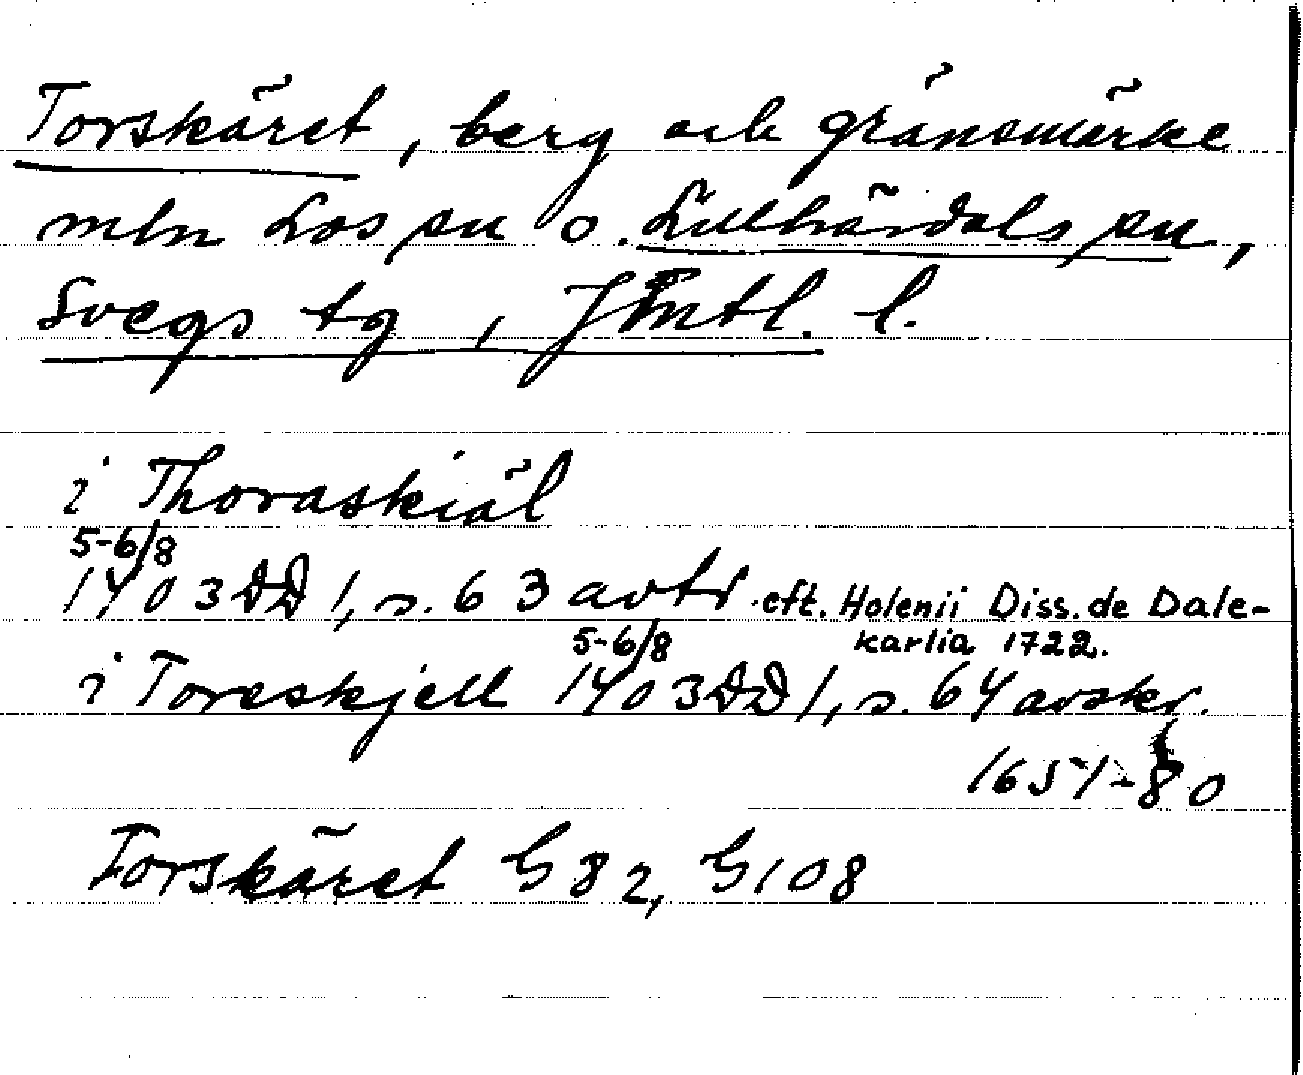 Torskäret, berg och gränsmärke
mln Los sn o. Lillhärdals sn,
Svegs tg, Jämtl. l.
i Thoraskiäl
5-6/8
1403 DD 1, s. 63 avtr. eft. Holenii Diss. de Dale-
karlia 1722.
i Toreskjell 5-6/8 1403 DD 1, s. 64 avskr.
1651-80
Torskäret G82, G108